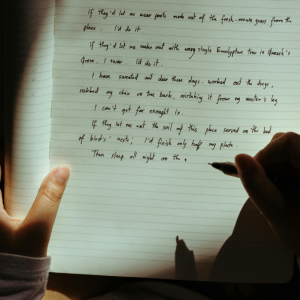 If they'd let me wear pants made out of the fresh-mown grass from the
place. I'd do it.
If they'd let me make out with every single Eucalyptus tree in Queen's
Grove. I swear. I'd do it.
I have sweated out dew these days, worked out the dregs,
rubbed my chin on tree bark, mistaking it from my master's leg
I can't get far enough in.
If they let me eat the soil of this place served on the bed
of bird's nests, I'd finish only half my plate.
Then sleep all night on the